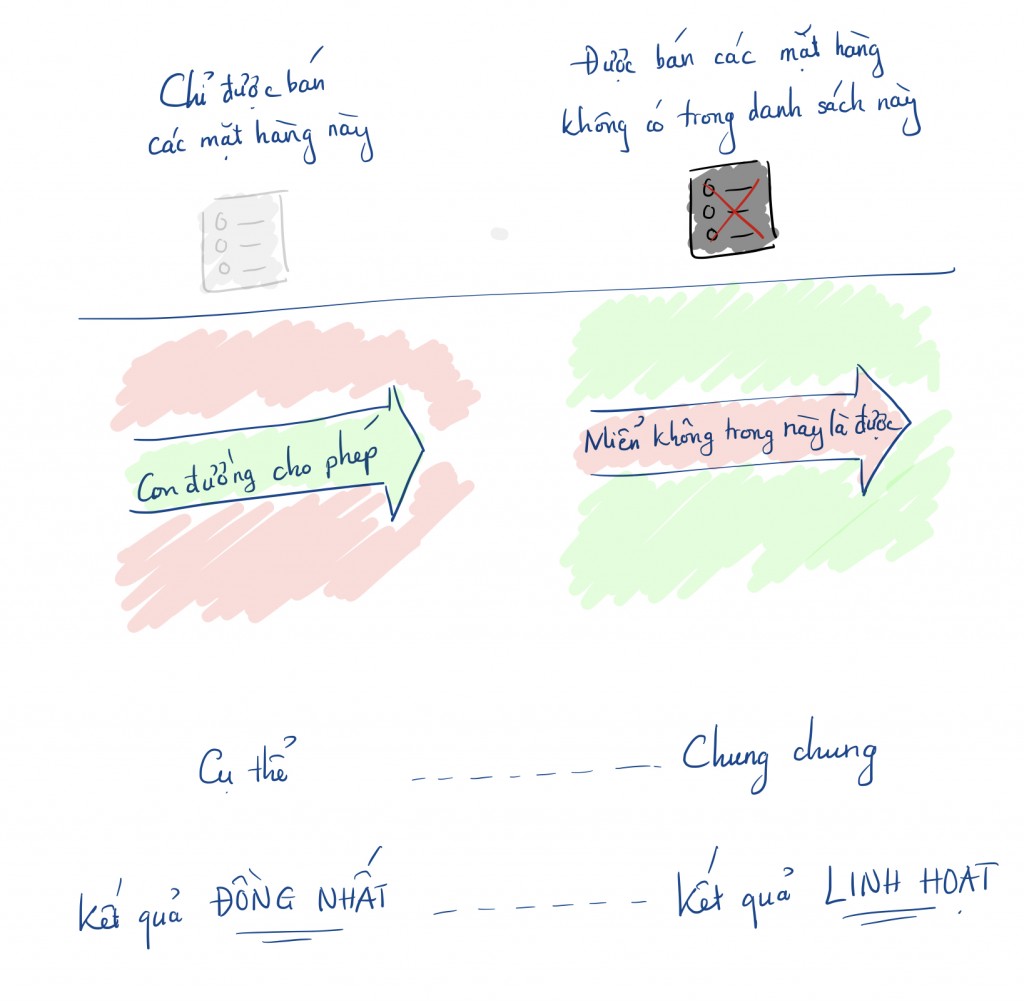 Chỉ được bán
các mặt hàng này
Được bán các mặt hàng
không có trong danh sách này
Con đường cho phép
Miễn không trong này là được
Cụ thể
Chung chung
Kết quả ĐỒNG NHẤT
Kết quả LINH HOẠT